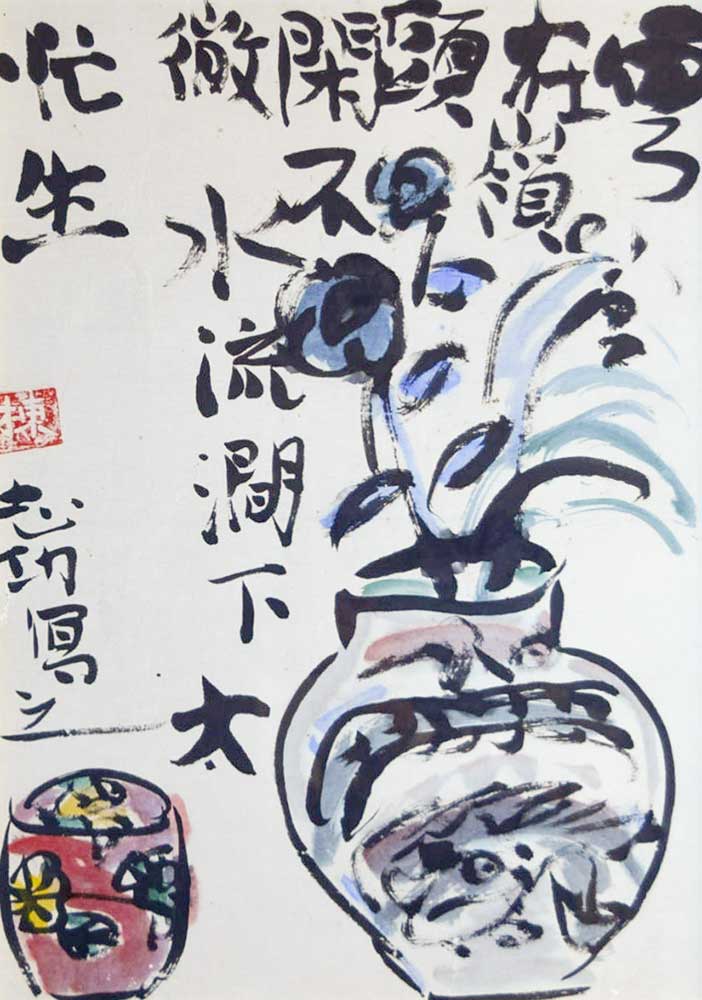 雲
在嶺
頭
閑不
徹
水流澗下太
忙生
志功寫之
棟